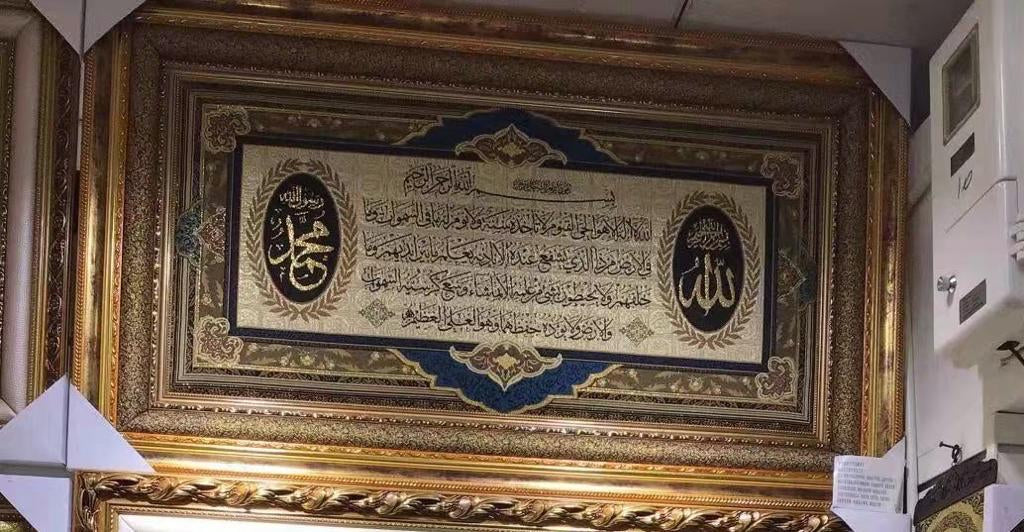 بسم الله الرحمن الرحيم
الله لا اله الا هو الحي القيوم لا تأخذه سنة ولا نوم له ما في السموات وما
في الارض من ذا الذي يشفع عنده الا باذنه يعلم ما بين ايديهم وما
خلفهم ولا يحيطون بشيء من علمه الا بما شاء وسع كرسيه السموات
والارض ولا يوده حفظهما وهو العلي العظيم
الله
رسول الله
محمد